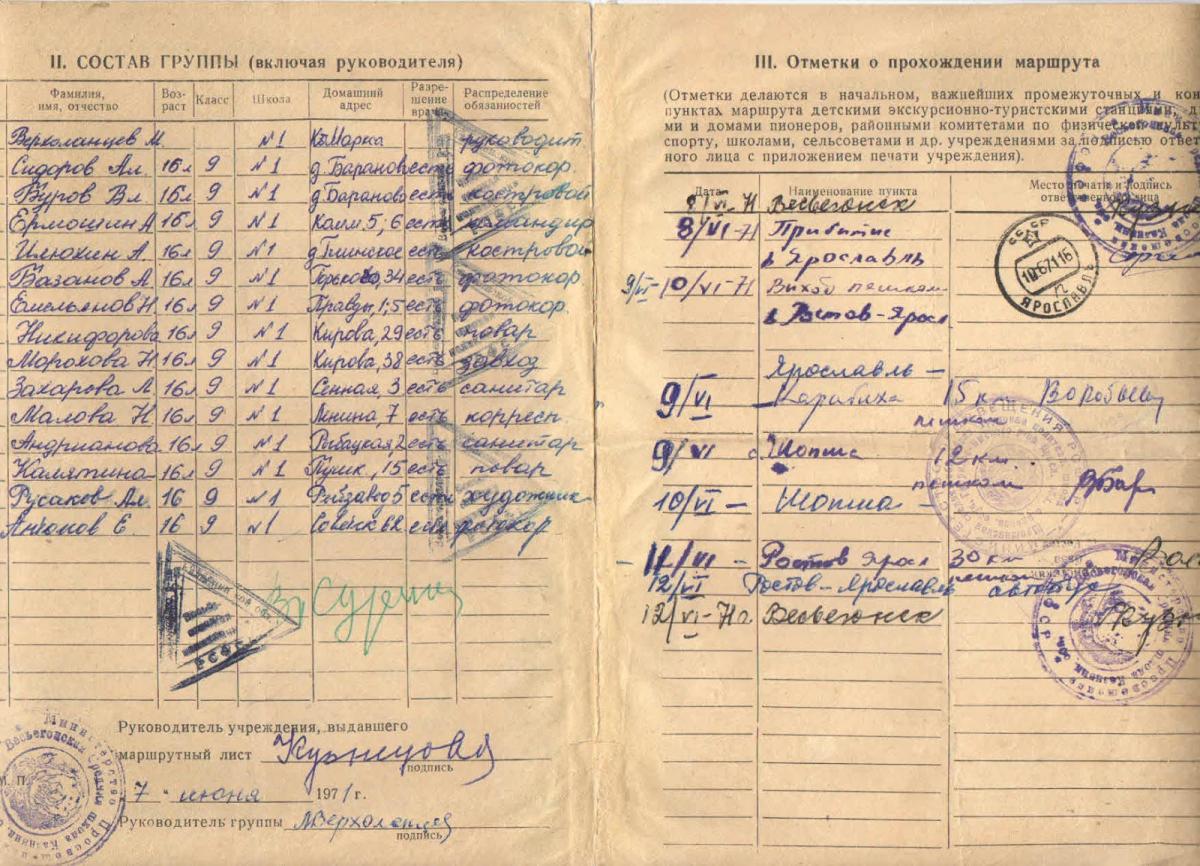 II. СОСТАВ ГРУППЫ (включая руководителя)
Фамилия, имя, отчество Воз- раст Класс Школа Домашний адрес Разре- шение врача Распределение обязанностей
Верхоланцев М. №1 К. Марка руководит
Сидоров Ал. 16л 9 №1 д. Баранов есть фотокор.
Буров Вл 16л 9 №1 д. Баранов есть костровой
Ермошин А 16л 9 №1 Комм 5; 6 есть командир
Илюхин А. 16л 9 №1 есть костровой
Базанов А. 16л 9 №1 34 есть фотокор
Емельянов Н. 16л 9 №1 Правды, 1; 5 есть фотокор.
Никифорова 16л 9 №1 Кирова, 29 есть повар
Морохова Н 16л 9 №1 Кирова, 38 есть завхоз
Захарова Л. 16л 9 №1 Сенная, 3 есть санитар
Малова Н. 16л 9 №1 Ленина, 7 есть корресп.
Андрианова 16л 9 №1 Рыбацкая 2 есть санитар
Калятина 16л 9 №1 Пушк, 15 есть повар
Русаков Ал. 16 9 №1 Рыбзавод 5 есть художник
Антонов Е. 16 9 №1 Советск 62 есть фотокор
РСФСР
Руководитель учреждения, выдавшего
маршрутный лист Кузнецова
подпись
М. П.
7 " июня 1971 г.
Руководитель группы МВерхоланцев
подпись
Министерство Просвещ
Весьегонская средняя школа Калинин
III. Отметки о прохождении маршрута
(Отметки делаются в начальном, важнейших промежуточных и кон
пунктах маршрута детскими экскурсионно-туристскими станциями, д
ми и домами пионеров, районными комитетами по физическ культ
спорту, школами, сельсоветами и др. учреждениями за подписью ответ
ного лица с приложением печати учреждения).
Дата Наименование пункта Место печати и подпись ответственного лица
8/VI-71 Весьегонск
8/VI-71 Прибытие
в Ярославль
СССР
10.6.71.16
ЯРОСЛАВЛЬ
9/VI 10/VI-71 Выход пешком
в Ростов-Яросл
Ярославль –
9/VI – Карабиха 15 км Воробьев
пешком
9/VI с. Шопша 12 км.
пешком
10/VI – Шопша –
11/VI – Ростов Яросл 30 км
пешком
12/VI Ростов-Ярославль
12/VI-71г. Весьегонск